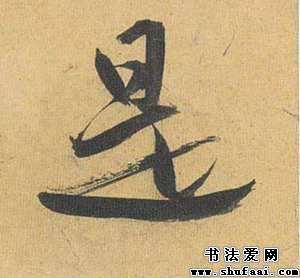 是
书法爱网
www.shufaai.com